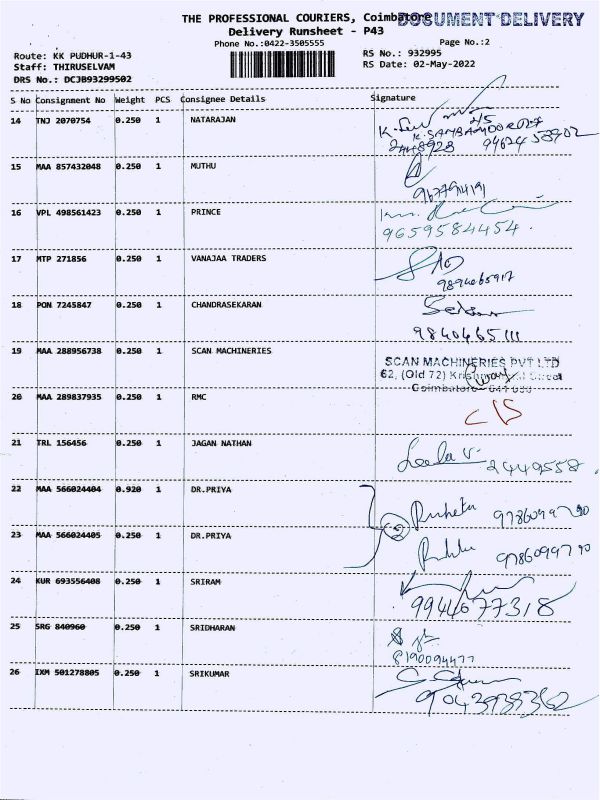 THE PROFESSIONAL COURIERS, Coimbatore
DOCUMENT DELIVERY
Delivery Runsheet - P43
Phone No.:0422-3505555
Page No.:2
Route: KK PUDHUR-1-43
RS No.: 932995
Staff: THIRUSELVAM
RS Date: 02-May-2022
DRS No.: DCJB93299502
S No Consignment No Weight PCS Consignee Details Signature
14 TNJ 2070754 0.250 1 NATARAJAN
15 MAA 857432048 0.250 1 MUTHU
16 VPL 498561423 0.250 1 PRINCE
9659584454.
17 MTP 271856 0.250 1 VANAJAA TRADERS
9894065917
18 PON 7245847 0.250 1 CHANDRASEKARAN
9840465111
19 MAA 288956738 0.250 1 SCAN MACHINERIES
SCAN MACHINERIES PVT LTD
62, (Old 72)
Coimbatore
20 MAA 289837935 0.250 1 RMC
21 TRL 156456 0.250 1 JAGAN NATHAN
Leela V. 2449558.
22 MAA 566024404 0.920 1 DR.PRIYA
2
23 MAA 566024405 0.250 1 DR.PRIYA
24 KUR 693556408 0.250 1 SRIRAM
9944677318
25 SRG 840960 0.250 1 SRIDHARAN
8190094477
26 IXM 501278805 0.250 1 SRIKUMAR